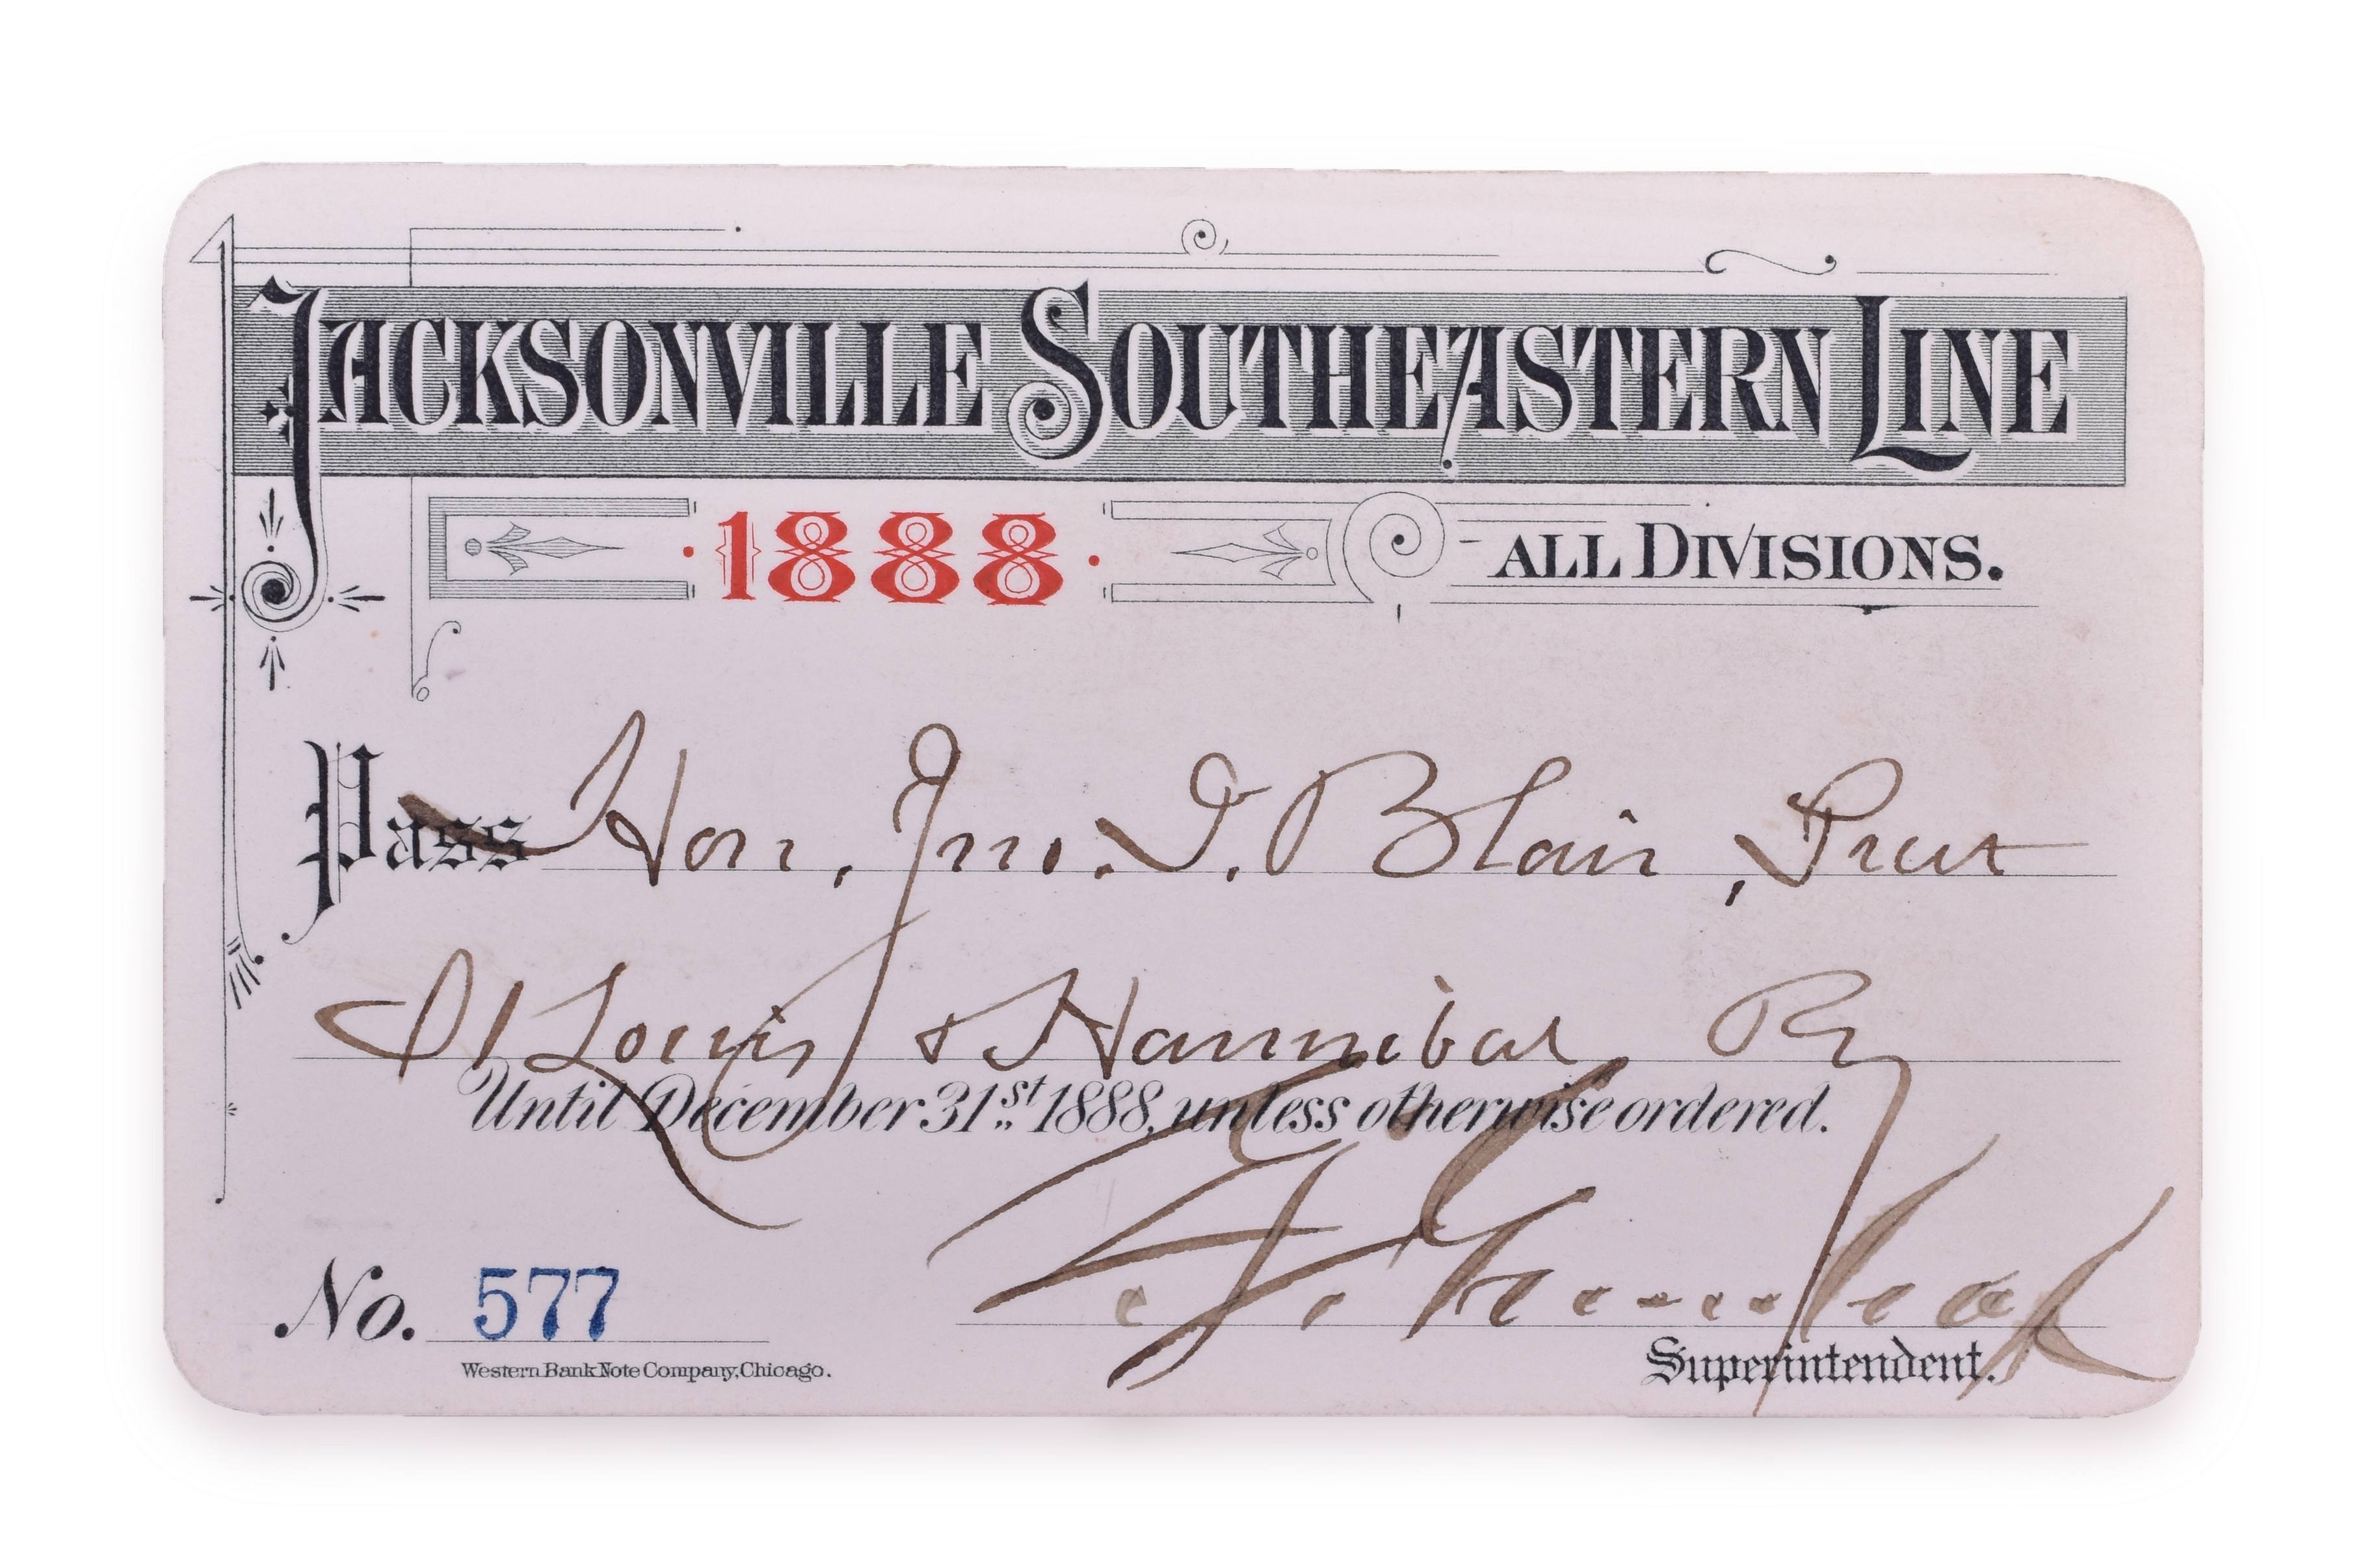 JACKSONVILLE SOUTHEASTERN LINE
1888 ALL DIVISIONS.
Pass Hon, Jno. I. Blair, Prest
St Louis & Hannibal Ry
Until December 31st 1888, unless otherwise ordered.
No. 577
Superintendent.
Western Bank Note Company, Chicago.